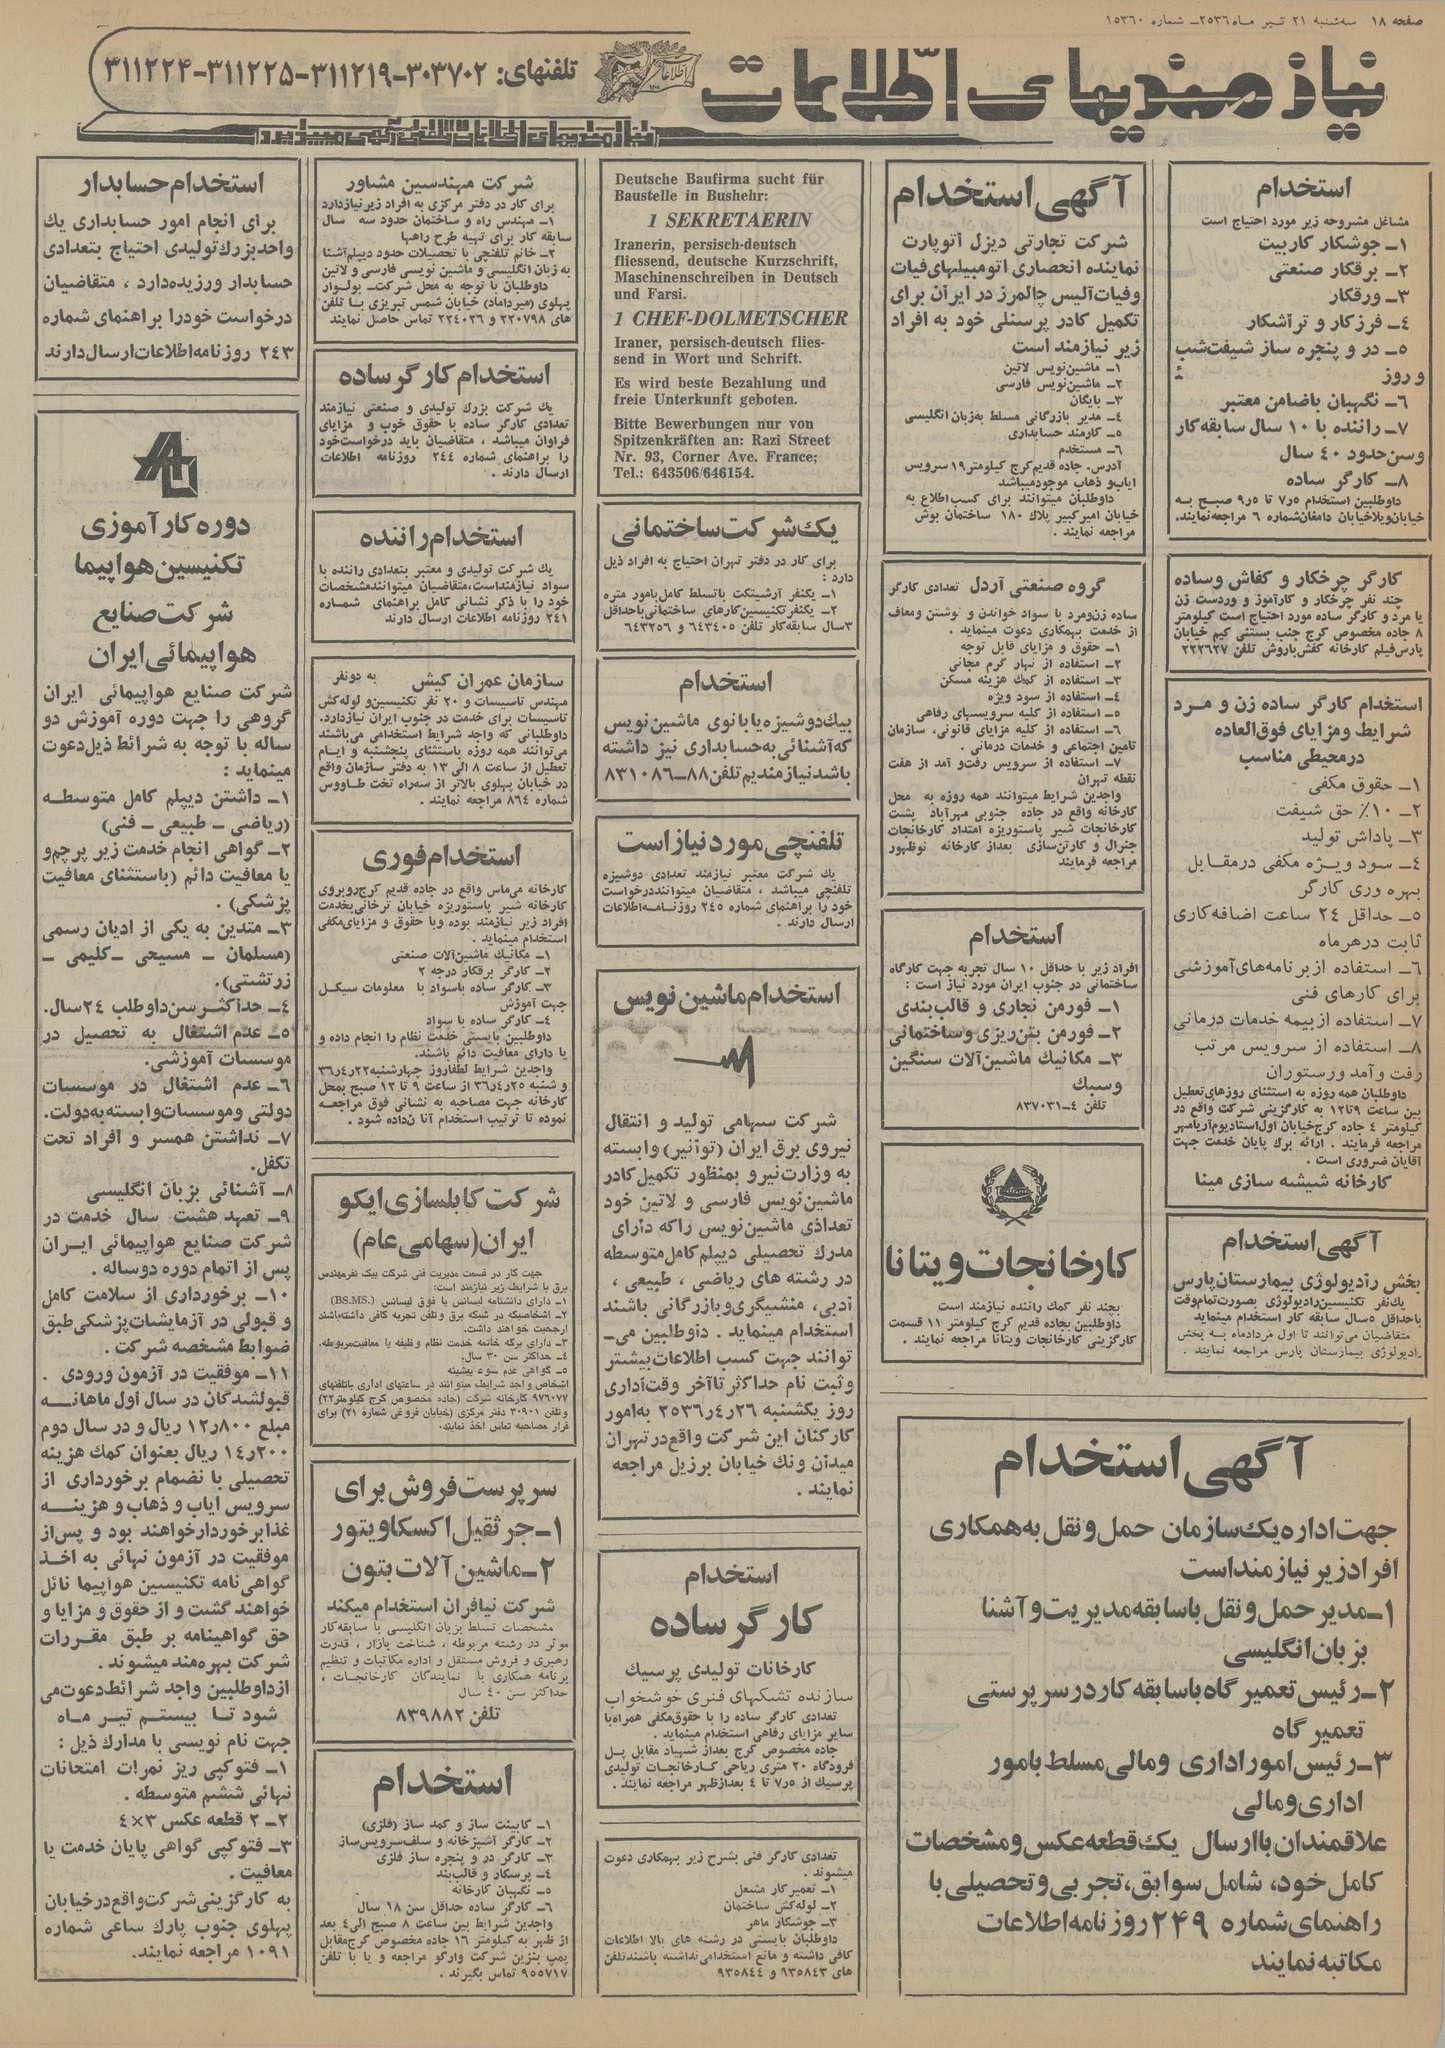 صفحه ۱۸ سه‌شنبه ۲۱ تیر ماه ۲۵۳۶ـ شماره ۱۵۳۶۰
نیازمندیهای اطلاعات
تلفنهای: ۳۰۳۷۰۲-۳۱۱۲۱۹-۳۱۱۲۲۵-۳۱۱۲۲۴
نیازمندیهای اطلاعات تلفنی آگهی میپذیرد
استخدام
مشاغل مشروحه زیر مورد احتیاج است
۱ـ جوشکار کاربیت
۲ـ برقکار صنعتی
۳ـ ورقکار
۴ـ فرزکار و تراشکار
۵ـ در و پنجره ساز شیفت‌شب
و روز
۶ـ نگهبان باضامن معتبر
۷ـ راننده با ۱۰ سال سابقه‌کار
وسن‌حدود ۴۰ سال
۸ـ کارگر ساده
داوطلبین استخدام ۷ر۵ تا ۹ر۵ صبح به
خیابان‌ویلاخیابان دامغان‌شماره ۶ مراجعه‌نمایند.
کارگر چرخکار و کفاش وساده
چند نفر چرخکار و کارآموز و وردست زن
یا مرد و کارگر ساده مورد احتیاج است کیلومتر
۸ جاده مخصوص کرج جنب بستنی کیم خیابان
پارس‌فیلم کارخانه کفش‌باروش تلفن ۲۲۲۶۲۷
استخدام کارگر ساده زن و مرد
شرایط ومزایای فوق‌العاده
درمحیطی مناسب
۱ـ حقوق مکفی
۲ـ ۱۰٪ حق شیفت
۳ـ پاداش تولید
۴ـ سود ویژه مکفی درمقابل
بهره وری کارگر
۵ـ حداقل ۲۴ ساعت اضافه‌کاری
ثابت درهرماه
۶ـ استفاده ازبرنامه‌های‌آموزشی
برای کارهای فنی
۷ـ استفاده ازبیمه خدمات درمانی
۸ـ استفاده از سرویس مرتب
رفت وآمد ورستوران
داوطلبان همه روزه به استثنای روزهای‌تعطیل
بین ساعت ۹تا۱۲ به کارگزینی شرکت واقع در
کیلومتر ۴ جاده کرج‌خیابان اول‌استادیوم‌آریامهر
مراجعه فرمایند . ارائه برگ پایان خدمت جهت
آقایان ضروری است .
کارخانه شیشه سازی مینا
آگهی استخدام
بخش رادیولوژی بیمارستان پارس
یک‌نفر تکنیسین‌رادیولوژی بصورت‌تمام‌وقت
باحداقل ۵سال سابقه کار استخدام مینماید
متقاضیان می‌توانند تا اول مردادماه به بخش
رادیولوژی بیمارستان پارس مراجعه نمایند .
آگهی استخدام
شرکت تجارتی دیزل اتوپارت
نماینده انحصاری اتومبیلهای‌فیات
وفیات‌آلیس چالمرز در ایران برای
تکمیل کادر پرسنلی خود به افراد
زیر نیازمند است
۱ـ ماشین‌نویس لاتین
۲ـ ماشین‌نویس فارسی
۳ـ بایگان
۴ـ مدیر بازرگانی مسلط به‌زبان انگلیسی
۵ـ کارمند حسابداری
۶ـ مستخدم
آدرس. جاده قدیم‌کرج کیلومتر۱۹ سرویس
ایاب‌و ذهاب موجودمیباشد
داوطلبان میتوانند برای کسب‌اطلاع به
خیابان امیرکبیر پلاک ۱۸۰ ساختمان بوش
مراجعه نمایند .
گروه صنعتی آردل تعدادی کارگر
ساده زن‌ومرد با سواد خواندن و نوشتن ومعاف
از خدمت بهمکاری دعوت مینماید .
۱ـ حقوق و مزایای قابل توجه
۲ـ استفاده از نهار گرم مجانی
۳ـ استفاده از کمک هزینه مسکن
۴ـ استفاده از سود ویژه
۵ـ استفاده از کلیه سرویسهای رفاهی
۶ـ استفاده از کلیه مزایای قانونی، سازمان
تامین اجتماعی و خدمات درمانی .
۷ـ استفاده از سرویس رفت‌و آمد از هفت
نقطه تهران
واجدین شرایط میتوانند همه روزه به محل
کارخانه واقع در جاده جنوبی مهرآباد پشت
کارخانجات شیر پاستوریزه امتداد کارخانجات
جنرال و کارتن‌سازی بعداز کارخانه نوظهور
مراجعه فرمایند
استخدام
افراد زیر با حداقل ۱۰ سال تجربه جهت کارگاه
ساختمانی در جنوب ایران مورد نیاز است :
۱ـ فورمن نجاری و قالب‌بندی
۲ـ فورمن بتن‌ریزی وساختمانی
۳ـ مکانیک ماشین‌آلات سنگین
وسبک
تلفن ۴ـ۸۳۷۰۳۱
کارخانجات ویتانا
بچند نفر کمک راننده نیازمند است
داوطلبین بجاده قدیم کرج کیلومتر ۱۱ قسمت
کارگزینی کارخانجات ویتانا مراجعه نمایند .
آگهی استخدام
جهت اداره یک سازمان حمل و نقل به همکاری
افراد زیر نیازمند است
۱ـ مدیر حمل و نقل با سابقه مدیریت و آشنا
بزبان انگلیسی
۲ـ رئیس تعمیرگاه باسابقه کار در سرپرستی
تعمیرگاه
۳ـ رئیس امور اداری و مالی مسلط بامور
اداری و مالی
علاقمندان با ارسال یک قطعه عکس و مشخصات
کامل خود، شامل سوابق، تجربی و تحصیلی با
راهنمای شماره ۲۴۹ روزنامه اطلاعات
مکاتبه نمایند
Deutsche Baufirma sucht für
Baustelle in Bushehr:
1 SEKRETAERIN
Iranerin, persisch-deutsch
fliessend, deutsche Kurzschrift,
Maschinenschreiben in Deutsch
und Farsi.
1 CHEF-DOLMETSCHER
Iraner, persisch-deutsch flies-
send in Wort und Schrift.
Es wird beste Bezahlung und
freie Unterkunft geboten.
Bitte Bewerbungen nur von
Spitzenkräften an: Razi Street
Nr. 93, Corner Ave. France;
Tel.: 643506/646154.
یک شرکت ساختمانی
برای کار در دفتر تهران احتیاج به افراد ذیل
دارد :
۱ـ یکنفر آرشیتکت باتسلط کامل‌بامور متره
۲ـ یکنفر تکنیسین‌کارهای ساختمانی‌باحداقل
۳سال سابقه‌کار تلفن ۶۴۳۴۰۵ و ۶۴۳۲۵۶
استخدام
بیک‌دوشیزه یابانوی ماشین‌نویس
که‌آشنائی به‌حسابداری نیز داشته
باشد نیازمندیم تلفن ۸۸ـ۸۳۱۰۸۶
تلفنچی مورد نیاز است
یک شرکت معتبر نیازمند تعدادی دوشیزه
تلفنچی میباشد ، متقاضیان میتوانند درخواست
خود را براهنمای شماره ۲۴۵ روزنامه‌اطلاعات
ارسال دارند .
استخدام ماشین نویس
شرکت سهامی تولید و انتقال
نیروی برق ایران (توانیر) وابسته
به وزارت‌نیرو بمنظور تکمیل کادر
ماشین‌نویس فارسی و لاتین خود
تعدادی ماشین‌نویس راکه دارای
مدرک تحصیلی دیپلم کامل متوسطه
در رشته های ریاضی ، طبیعی ،
ادبی، منشیگری‌وبازرگانی باشند
استخدام مینماید . داوطلبین می‌ـ
توانند جهت کسب اطلاعات بیشتر
و ثبت نام حداکثر تاآخر وقت‌اداری
روز یکشنبه ۲۶ر۴ر۲۵۳۶ به‌امور
کارکنان این شرکت واقع‌در تهران
میدان ونک خیابان برزیل مراجعه
نمایند .
استخدام
کارگر ساده
کارخانات تولیدی پرسیک
سازنده تشکهای فنری خوشخواب
تعدادی کارگر ساده را با حقوق‌مکفی همراه‌با
سایر مزایای رفاهی استخدام مینماید .
جاده مخصوص کرج بعداز شهیاد مقابل پل
فرودگاه ۲۰ متری ریاحی کارخانجات تولیدی
پرسیک از ۷ر۵ تا ۴ بعدازظهر مراجعه نمایند .
تعدادی کارگر فنی بشرح زیر بهمکاری دعوت
میشوند .
۱ـ تعمیرکار مشعل
۲ـ لوله‌کش ساختمان
۳ـ جوشکار ماهر
داوطلبان بایستی در رشته های بالا اطلاعات
کافی داشته و مانع استخدامی نداشته باشند تلفن
های ۹۳۵۸۴۳ و ۹۳۵۸۴۴
شرکت مهندسین مشاور
برای کار در دفتر مرکزی به افراد زیر نیازدارد
۱ـ مهندس راه و ساختمان حدود سه سال
سابقه کار برای تهیه طرح راهها
۲ـ خانم تلفنچی با تحصیلات حدود دیپلم آشنا
به زبان انگلیسی و ماشین نویسی فارسی و لاتین
داوطلبان با توجه به محل شرکت- بولوار
پهلوی (میرداماد) خیابان شمس تبریزی با تلفن
های ۲۲۰۷۹۸ و ۲۲۴۰۲۶ تماس حاصل نمایند
استخدام کارگر ساده
یک شرکت بزرگ تولیدی و صنعتی نیازمند
تعدادی کارگر ساده با حقوق خوب و مزایای
فراوان میباشد ، متقاضیان باید درخواست‌خود
را براهنمای شماره ۲۴۴ روزنامه اطلاعات
ارسال دارند .
استخدام راننده
یک شرکت تولیدی و معتبر بتعدادی راننده با
سواد نیازمند است، متقاضیان میتوانند مشخصات
خود را با ذکر نشانی کامل براهنمای شماره
۲۴۱ روزنامه اطلاعات ارسال دارند
سازمان عمران کیش به دونفر
مهندس تاسیسات و ۲۰ نفر تکنیسین‌و لوله‌کش
تاسیسات برای خدمت در جنوب ایران نیازدارد.
داوطلبانی که واجد شرایط استخدامی می‌باشند
می‌توانند همه روزه باستثنای پنجشنبه و ایام
تعطیل از ساعت ۸ الی ۱۳ به دفتر سازمان واقع
در خیابان پهلوی بالاتر از سه‌راه تخت طاووس
شماره ۸۶۴ مراجعه نمایند .
استخدام فوری
کارخانه می‌ماس واقع در جاده قدیم کرج‌روبروی
کارخانه شیر پاستوریزه خیابان ترخانی بخدمت
افراد زیر نیازمند بوده وبا حقوق و مزایای‌مکفی
استخدام مینماید .
۱ـ مکانیک ماشین‌آلات صنعتی
۲ـ کارگر برقکار درجه ۲
۳ـ کارگر ساده باسواد با معلومات سیکل
جهت آموزش
۴ـ کارگر ساده با سواد
داوطلبین بایستی خدمت نظام را انجام داده و
یا دارای معافیت دائم باشند.
واجدین شرایط لطفاروز چهارشنبه۲۲ر۴ر۳۶
و شنبه ۲۵ر۴ر۳۶ از ساعت ۹ تا ۱۲ صبح بمحل
کارخانه جهت مصاحبه به نشانی فوق مراجعه
نموده تا ترتیب استخدام آنان داده شود .
شرکت کابلسازی ایکو
ایران (سهامی عام)
جهت کار در قسمت مدیریت فنی شرکت بیک نفرمهندس
برق با شرایط زیر نیازمند است:
۱ـ دارای دانشنامه لیسانس یا فوق لیسانس (BS.MS.)
۲ـ اشخاصیکه در شبکه برق و تلفن تجربه کافی داشته‌باشند
ارجحیت خواهند داشت.
۳ـ دارای برگه خاتمه خدمت نظام وظیفه یا معافیت‌مربوطه.
۴ـ حداکثر سن ۳۰ سال.
۵ـ گواهی عدم سوء پیشینه
اشخاص واجد شرایط میتوانند در ساعتهای اداری باتلفنهای
۹۷۶۰۷۷ کارخانه شرکت (جاده مخصوص کرج کیلومتر۲۲)
و تلفن ۳۰۹۰۱ دفتر مرکزی (خیابان فروغی شماره ۲۱) برای
قرار مصاحبه تماس اخذ نمایند.
سرپرست فروش برای
۱ـ جرثقیل اکسکاویتور
۲ـ ماشین آلات بتون
شرکت نیافران استخدام میکند
مشخصات تسلط بزبان انگلیسی با سابقه‌کار
موثر در رشته مربوطه ، شناخت بازار ، قدرت
رهبری و فروش مستقل و اداره مکاتبات و تنظیم
برنامه همکاری با نمایندگان کارخانجات ،
حداکثر سن ۴۰ سال
تلفن ۸۳۹۸۸۲
استخدام
۱ـ کابینت ساز و کمد ساز (فلزی)
۲ـ کارگر آشپزخانه و سلف‌سرویس‌ساز
۳ـ کارگر در و پنجره ساز فلزی
۴ـ پرسکار و قالب‌بند
۵ـ نگهبان کارخانه
۶ـ کارگر ساده حداقل سن ۱۸ سال
واجدین شرایط بین ساعت ۸ صبح الی۴ بعد
از ظهر به کیلومتر ۱۶ جاده مخصوص کرج‌مقابل
پمپ بنزین شرکت وارکو مراجعه و یا با تلفن
۹۵۵۷۱۷ تماس بگیرند .
استخدام حسابدار
برای انجام امور حسابداری یک
واحد بزرگ تولیدی احتیاج بتعدادی
حسابدار ورزیده‌دارد ، متقاضیان
درخواست خودرا براهنمای شماره
۲۴۳ روزنامه‌اطلاعات‌ارسال‌دارند
دوره کارآموزی
تکنیسین هواپیما
شرکت صنایع
هواپیمائی ایران
شرکت صنایع هواپیمائی ایران
گروهی را جهت دوره آموزش دو
ساله با توجه به شرائط ذیل‌دعوت
مینماید :
۱ـ داشتن دیپلم کامل متوسطه
(ریاضی ـ طبیعی ـ فنی)
۲ـ گواهی انجام خدمت زیر پرچم‌و
یا معافیت دائم (باستثنای معافیت
پزشکی) .
۳ـ متدین به یکی از ادیان رسمی
(مسلمان ـ مسیحی ـ کلیمی ـ
زرتشتی).
۴ـ حداکثرسن‌داوطلب ۲۴سال.
۵ـ عدم اشتغال به تحصیل در
موسسات آموزشی.
۶ـ عدم اشتغال در موسسات
دولتی وموسسات‌وابسته به‌دولت.
۷ـ نداشتن همسر و افراد تحت
تکفل.
۸ـ آشنائی بزبان انگلیسی
۹ـ تعهد هشت سال خدمت در
شرکت صنایع هواپیمائی ایران
پس از اتمام دوره دوساله .
۱۰ـ برخورداری از سلامت کامل
و قبولی در آزمایشات پزشکی‌طبق
ضوابط مشخصه شرکت .
۱۱ـ موفقیت در آزمون ورودی .
قبولشدگان در سال اول ماهانه
مبلغ ۱۲ر۸۰۰ ریال و در سال دوم
۱۴ر۲۰۰ ریال بعنوان کمک هزینه
تحصیلی با نضمام برخورداری از
سرویس ایاب و ذهاب و هزینه
غذابرخوردارخواهند بود و پس‌از
موفقیت در آزمون نهائی به اخذ
گواهی‌نامه تکنیسین هواپیما نائل
خواهند گشت و از حقوق و مزایا و
حق گواهینامه بر طبق مقررات
شرکت بهره‌مند میشوند .
ازداوطلبین واجد شرائط دعوت‌می
شود تا بیستم تیر ماه
جهت نام نویسی با مدارک ذیل :
۱ـ فتوکپی ریز نمرات امتحانات
نهائی ششم متوسطه .
۲ـ ۲ قطعه عکس ۳×۴
۳ـ فتوکپی گواهی پایان خدمت یا
معافیت .
به کارگزینی شرکت‌واقع‌درخیابان
پهلوی جنوب پارک ساعی شماره
۱۰۹۱ مراجعه نمایند.